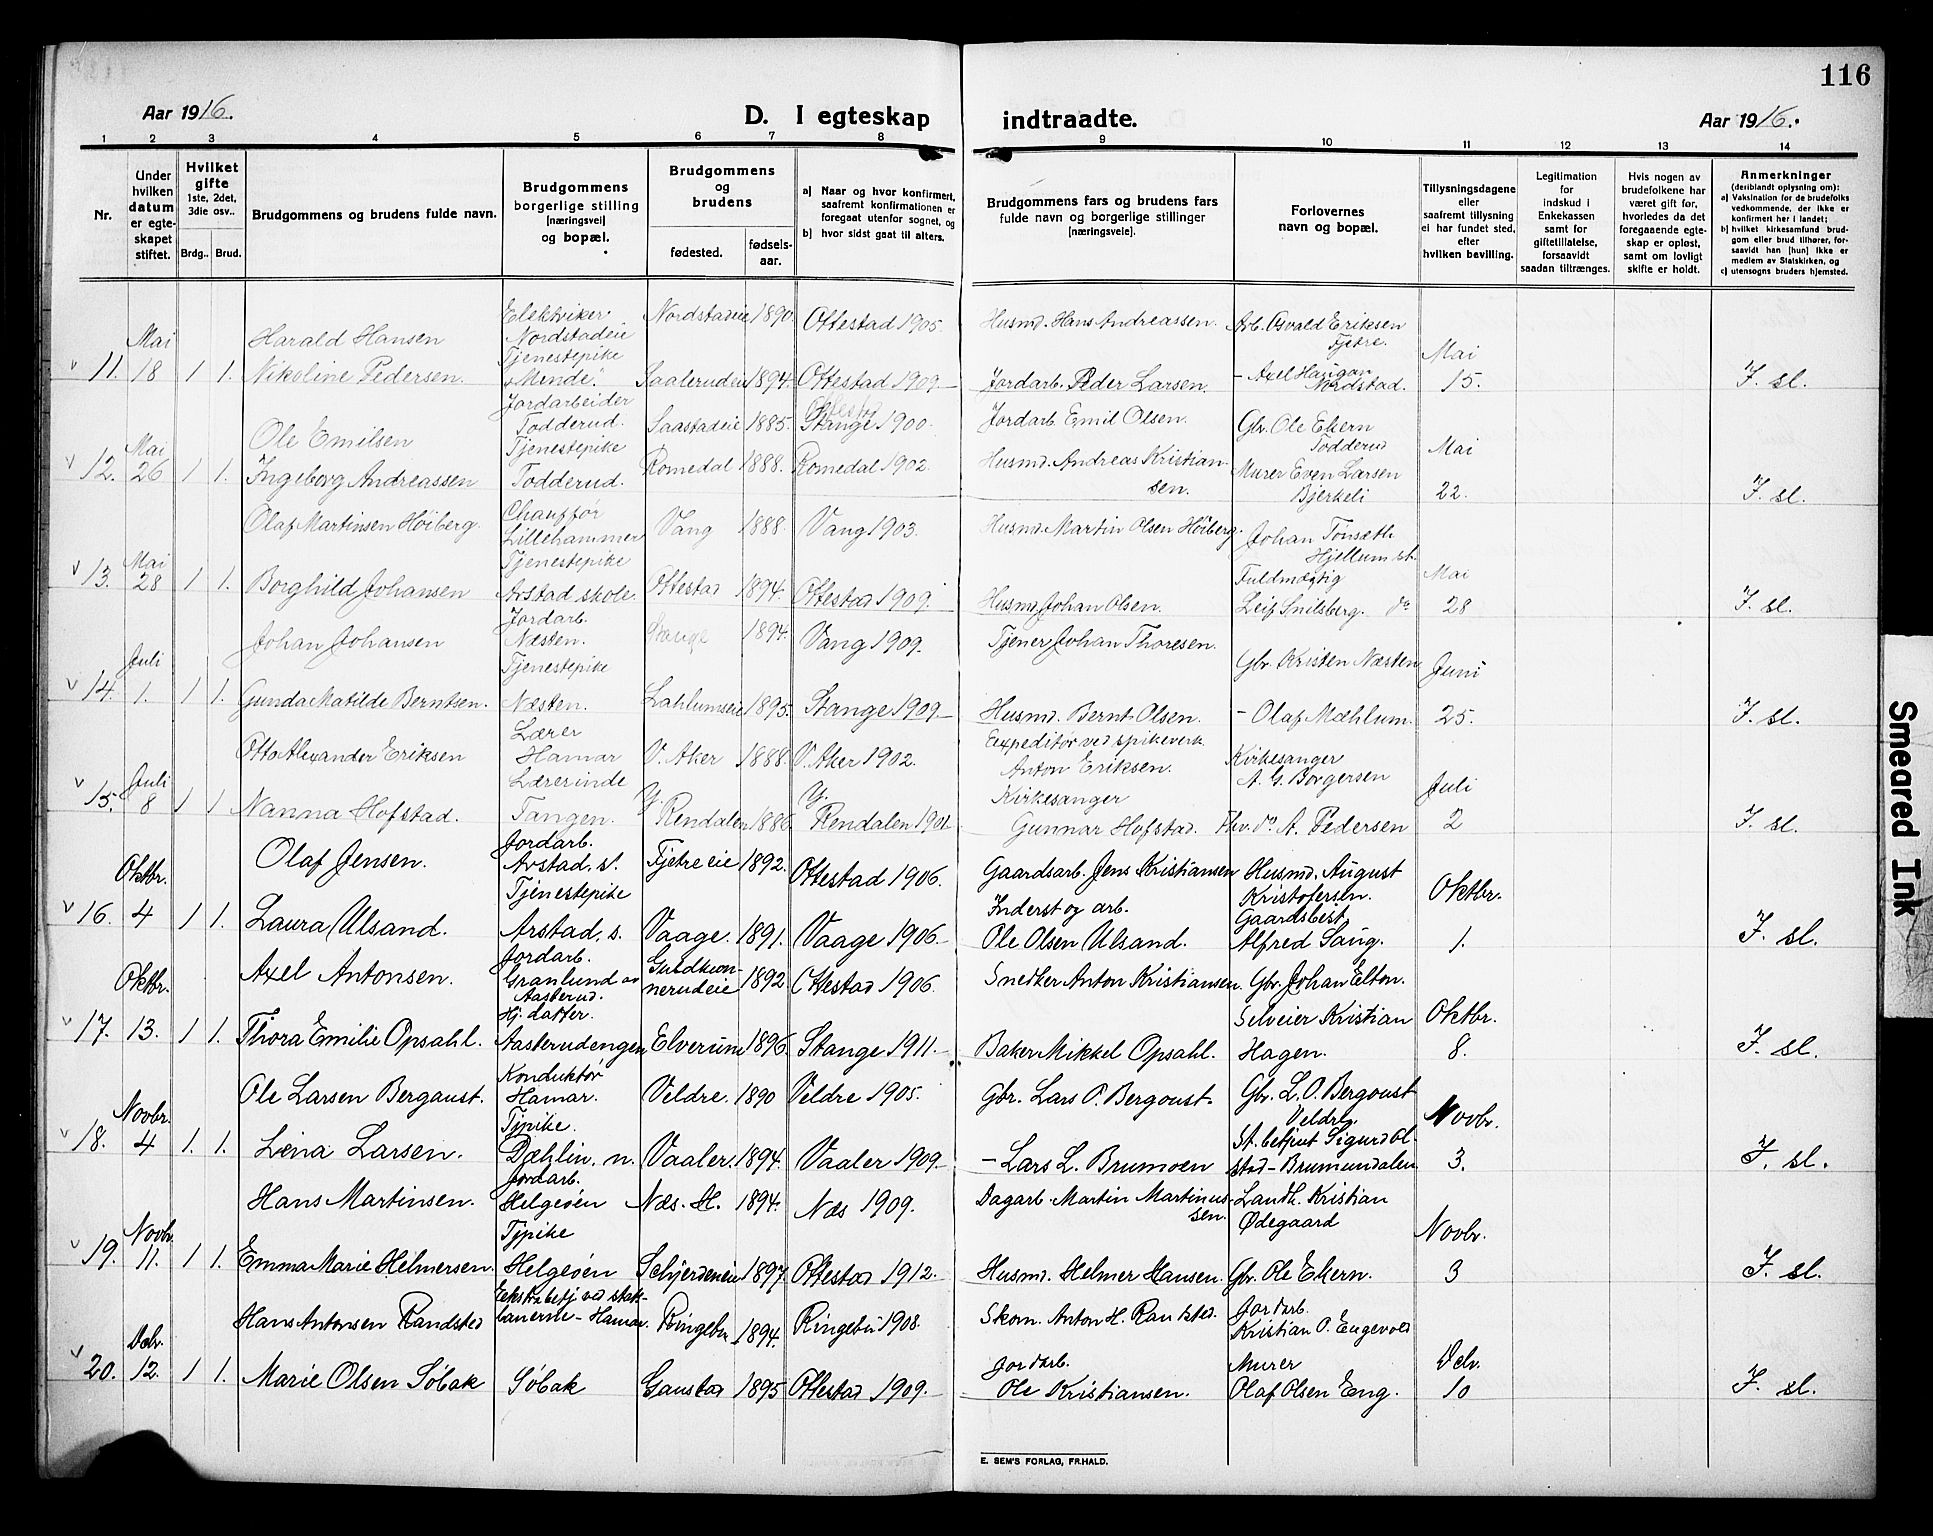 116
Aar 1916.
D. I egteskap indtraadte.
Aar 1916.
1 2 3 4 5 6 7 8 9 10 11 12 13 14
Nr.
Under hvilken datum er egteskapet stiftet.
Hvilket gifte 1ste, 2det, 3die osv..
Brdg.. Brud.
Brudgommens og brudens fulde navn.
Brudgommens borgerlige stilling [næringsvei] og bopæl.
Brudgommens og brudens
fødested.
fødselsaar.
a) Naar og hvor konfirmert, saafremt konfirmationen er foregaat utenfor sognet, og
b) hvor sidst gaat til alters.
Brudgommens fars og brudens fars fulde navn og borgerlige stillinger [næringsveie].
Forlovernes navn og bopæl.
Tillysningsdagene eller saafremt tillysning ei har fundet sted, efter hvilken bevilling.
Legitimation for indskud i Enkekassen samt for giftetillatelse, forsaavidt saadan tiltrænges.
Hvis nogen av brudefolkene har været gift før, hvorledes da det foregaaende egteskap er opløst, samt om lovligt skifte er holdt.
Anmerkninger (deriblandt oplysning om):
a) Vaksination for de brudefolks vedkommende, der ikke er konfirmert her i landet;
b) hvilket kirkesamfund brudgom eller brud tilhører, forsaavidt han [hun] ikke er medlem av Statskirken, og
c) utensogns bruders hjemsted.
v 11. Mai 18 1 1.
Harald Hansen Elektriker Nordstadeie Nordstadeie 1890 Ottestad 1905. Husmd. Hans Andreassen. Arb. Osvald Eriksen Tjetre. Mai
Nikoline Pedersen. Tjenestepike "Mende". Saalerudeie 1894. Ottestad 1909. Jordarb. Peder Larsen. - Axel Haugan Nordstad. 15. F. sl.
v 12. Mai 26 1 1.
Ole Emilsen Jordarbeider Todderud. Saastadeie 1885. Ottestad Stange 1900. Jordarb. Emil Olsen. Gbr. Ole Ekern Todderud Mai
Ingeborg Andreassen Tjenestepike Todderud. Romedal 1888. Romedal 1902. Husmd. Andreas Kristiansen. Murer Even Larsen Bjerkeli 22. F. sl.
v 13. Mai 28 1 1.
Olaf Martinsen Høiberg. Chauffør Lillehammer Vang 1888. Vang 1903. Husmd. Martin Olsen Høiberg. Johan Tønsæth Hjellum st. Mai
Borghild Johansen Tjenestepike Arstad skole. Ottestad 1894. Ottestad 1909. Husmd. Johan Olsen. Fuldmægtig Leif Snilsberg. do 28 F. sl.
v 14. Juli 1. 1 1.
Johan Johansen Jordarb. Næsten. Stange 1894. Vang 1909. Tjener Johan Thoresen. Gbr. Kristen Næsten Juni
Gunda Matilde Berntsen. Tjenestepike Næsten. Lahlumseie 1895. Stange 1909. Husmd. Bernt Olsen. - Olaf Mæhlum. 25. F. sl.
v 15. Juli 8 1 1
Otto Alexander Eriksen Lærer Hamar V. Aker 1888. V. Aker 1902. Expeditør ved spikeverk. Anton Eriksen. Kirkesanger A. G. Borgersen Juli
Nanna Hofstad. Lærerinde Tangen. Y. Rendalen 1886. Y. Rendalen 1901 Kirkesanger Gunnar Hofstad. Fhv. do A. Pedersen 2 F. sl.
v 16. Oktbr. 4 1 1.
Olaf Jensen. Jordarb. Arstad. st. Tjetre eie 1892. Ottestad 1906. Gaardsarb. Jens Kristiansen Husmd. August Kristofersen. Oktbr.
Laura Ulsand. Tjenestepike Arstad. s. Vaage. 1891. Vaage 1906. Inderst og arb. Ole Olsen Ulsand. Gaardsbest Alfred Saug. 1. F. sl.
v 17. Oktbr. 13. 1 1.
Axel Antonsen. Jordarb. Granlund av Aasterud. 1892. Ottestad 1906. Snedker Anton Kristiansen. Gbr. Johan Elton. Oktbr.
Thora Emilie Opsahl. Hj. datter. Aasterudengen Elverum 1896. Stange 1911. Baker Mikkel Opsahl. Selveier Kristian Hagen. 8. F. sl.
v 18. Novbr. 4 1. 1.
Ole Larsen Bergaust. Konduktør Hamar. Veldre. 1890 Veldre 1905. Gbr. Lars O. Bergoust. Gbr. L. O. Bergoust Veldre. Novbr.
Lena Larsen. Tjpike. Dæhlin. n. Vaaler. 1894. Vaaler 1909. - Lars L. Brumoen St. betjent Sigurd Olstad - Brumundalen 3. F. sl.
v 19. Novbr. 11. 1 1.
Hans Martinsen. Jordarb. Helgeøen Næs. H. 1894. Næs 1909. Dagarb. Martin Martinussen. Landh. Kristian Ødegaard Novbr.
Emma Marie Helmersen. Tjpike Helgeøen Schjerdeneie 1897. Ottestad 1912. Husmd. Helmer Hansen. Gbr. Ole Ekern. 3 F. sl.
v 20. Debr. 12. 1 1.
Hans Antonsen Randsted Ekstrabetj ved statsbanerne - Hamar. Ringebu 1894. Ringebu 1908. Skom. Anton H. Randsted. Jordarb. Kristian O. Engevold Debr.
Marie Olsen Søbak Søbak Gaustad 1895 Ottestad 1909. Jordarb. Ole Kristiansen. Murer Olaf Olsen Eng. 10 F. sl.
E. SEM'S FORLAG, FR.HALD.
Smeared Ink